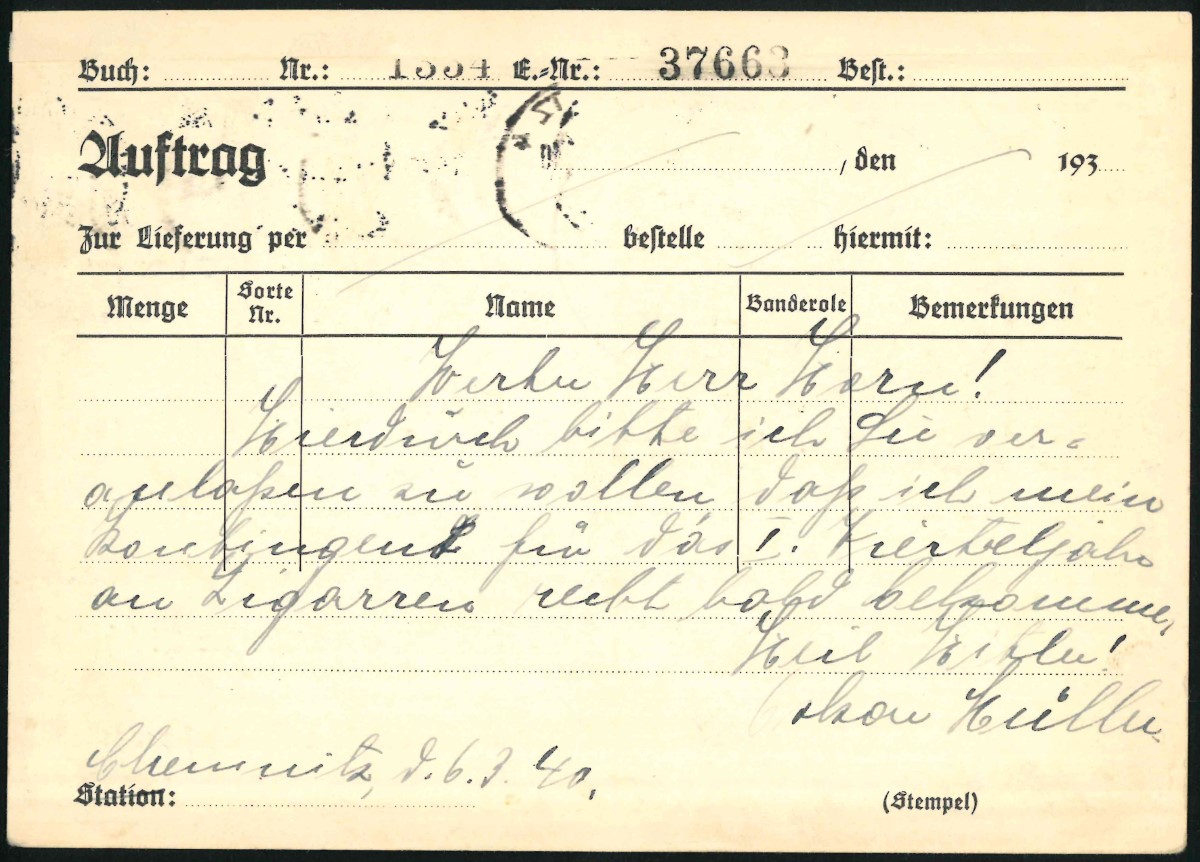 Buch: Nr.: 1334 E.-Nr.: 37663 Best.:
Auftrag , den 193
Zur Lieferung per bestelle hiermit:
Menge Sorte Nr. Name Banderole Bemerkungen
Werter Herr Horn!
Hierdurch bitte ich Sie ver=
anlaßen zu wollen daß ich mein
Kontingent für das I. Vierteljahr
an Zigarren recht bald bekomme,
Heil Hitler!
Oskar
Chemnitz, d. 6.3.40.
Station: (Stempel)